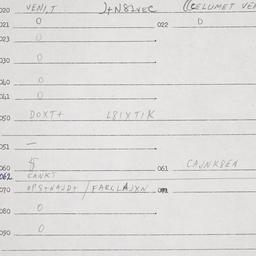 020 VENI,T )+N81VEC ((CELUMET VEN
021 0 022 0
023 0
030 0
040 0
041 0
050 DOXT+ L8IXTIK
051 —
060 061 CAJNK8EA
062 CANKT
070 OPS+NAJD+ / FARLLAJXN
080 0
090 0